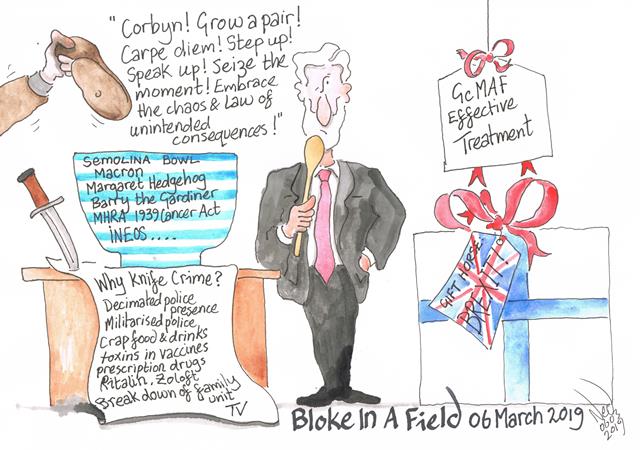 "Corbyn! Grow a pair!
Carpe diem! Step up!
Speak up! Seize the
moment! Embrace
the chaos & Law of
unintended
consequences!"
SEMOLINA BOWL
Macron
Margaret Hedgehog
Barry the Gardiner
MHRA 1939 Cancer Act
INEOS ....
Why Knife Crime?
Decimated police
presence
Militarised police
Crap food & drinks
toxins in vaccines
prescription drugs
Ritalin, Zoloft
Breakdown of family
unit
TV
GcMAF
Effective
Treatment
GIFT HORSE
BREXIT!
Bloke In A Field 06 March 2019
0603
2019